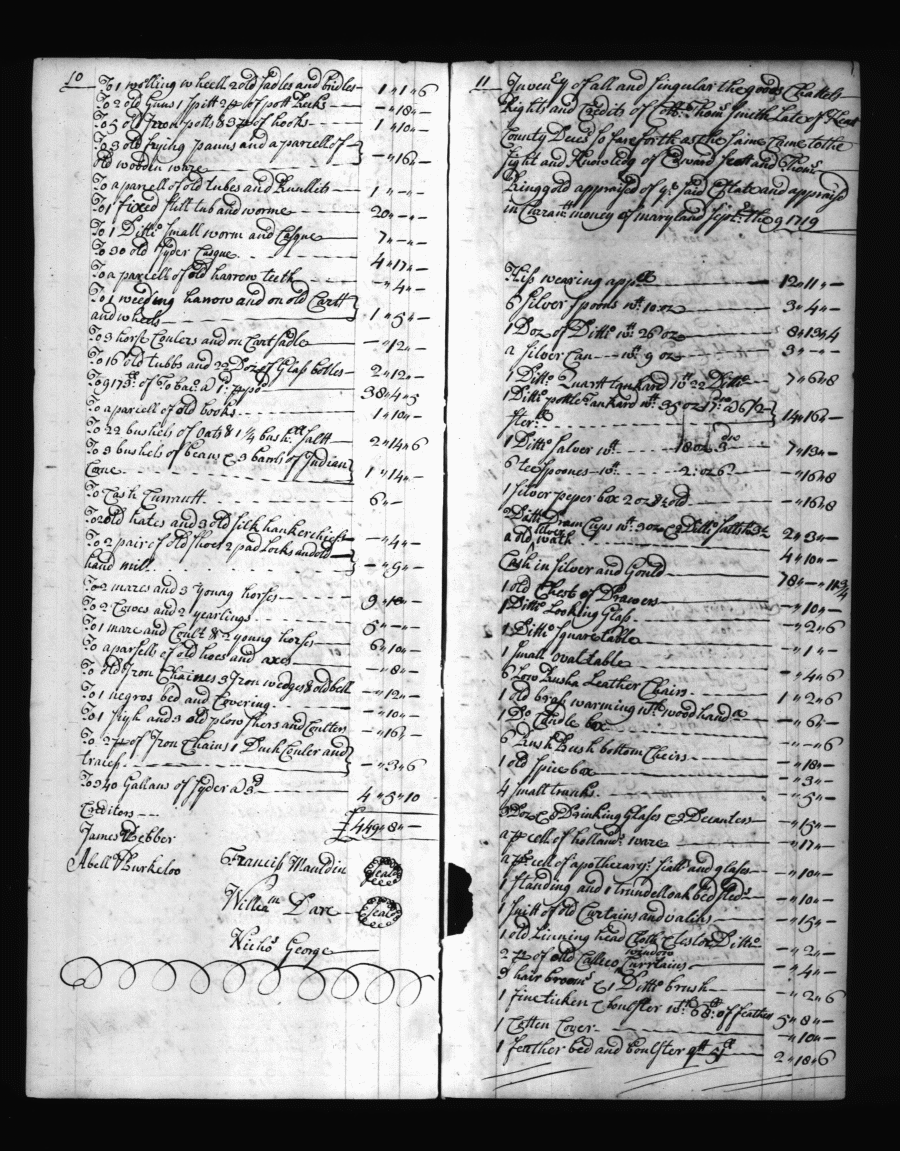 10
To 1 wolling wheell 2 old sadles and bridles 1 " 1 " 6
To 2 old Guns 1 spitt 2 pr of pott hecks - " 18 " -
To 5 old Iron potts & 3 pr of hooks 1 " 10 " -
To 3 old frying panns and a parcell of
old wooden ware - " 16 " -
To a parcell of old tubes and Runllits 1 " - " -
To 1 fixed still tub and worme 20 " - " -
To 1 Ditto small worm and Casque 7 " - " -
To 30 old Syder Casque 4 " 17 " -
To a parcell of old harrow teeth - " 4 " -
To 1 weeding harrow and on old Cartt
and wheels 1 " 5 " -
To 3 horse Coulers and on Cart sadle - " 12 " -
To 16 old tubbs and 22 Doz of Glass botles 2 " 12 " -
To 9173 lb of Tobaco a 1d p po 38 " 4 " 5
To a parcell of old books 1 " 10 " -
To 22 bushels of oats & 1 1/4 bashll saltt 2 " 14 " 6
To 3 bushels of beans & 3 barrls of Indian
Corne 1 " 14 " -
To Cash Currantt 6 " -
To 2 old hates and 3 old silk hankerchiefs - " 4 " -
To 2 pair of old shoes 2 pad locks and old
hand mill - " 9 " -
To 2 mares and 3 Young horses 9 " 10 " -
To 2 Cowes and 2 yearlings 5 " - " -
To 1 mare and Coult & 2 young horses 6 " 10 " -
To a parsell of old hoes and axes - " 8 " -
To old Iron Chaines 3 Iron wedges & old bell - " 12 " -
To 1 negros bed and Covering - " 10 " -
To 1 sigh and 3 old plow shers and Coulter - " 16 " -
To 2 pr of Iron Chains 1 Duck Couler and
traiess - " 3 " 6
To 340 Gallans of Syder a 3d 4 " 5 " 10
£449 " 8 " -
Creditors
James Webber
Abell VBurkeloo
Francis Mauldin Seale
Willeam Dare Seale
Nichos George
11 Inventy of all and singular the goods Chattels
Rights and Credits of Thoms Smith Late of Kent
County Decesd so fare forth as the same Came to the
sight and Knowledg of Edward Scott and Thoms
Ringgold appraised of ye said Estate and appraisd
in Currantt money of maryland Septr the 9 1719
His wearing appll 12 " 11 " -
6 Silver spoons wt 10 oz 3 " 4 " -
1 Doz of Ditto wt 26 oz 8 " 13 " 4
a silver Can wt 9 oz 3 " - " -
1 Ditto quartt tankard wt 22 Ditto 7 " 6 " 8
1 Ditto pottle tankard wt 35 oz
sterll 14 " 16 " -
1 Ditto Salver wt 18 oz 3 7 " 13 " -
6 tee spoones wt 2 oz - " 16 " 8
1 silver peper box 2 oz & 1/2 old - " 16 " 8
2 Ditto Dram Cups wt 3 oz & 2 Ditto salts 2 " 3 " -
a old silver wath 4 " 10 " -
Cash in silver and Gould 78 " - " 1 3/4
1 old Chest of Drawers - " 10 " -
1 Ditto Looking Glass - " 2 " 6
1 Ditto Square table - " 1 " -
1 small oval table - " 4 " 6
6 Low Rusha Leather Chairs 1 " 2 " 6
1 old brass warming wth wood handa - " 6 " -
1 Do Candle box - " - " 6
6 Rush Bush bottom Cheirs - " 18 " -
1 old spice box - " 3 " -
4 small trunks - " 5 " -
3 Doz & 8 Drinking Glases & 3 Decanters - " 15 " -
a psell of hollans ware - " 17 " -
a psell of apothecarys scails and glases - " 10 " -
1 standing and 1 trundell oak bed steds - " 10 " -
1 suitt of old Curtains and valiks - " 15 " -
1 old Linning head Cloth & tester Ditto - " 2 " -
2 pr of old Calleco window Currtains - " 4 " -
3 hair brooms & 1 Ditto brush - " 2 " 6
1 fine ticken & boulster wth 68 lb of feathes 5 " 8 " -
1 Cotten Cover - " 10 " -
1 feather bed and boulster 2 " 18 " 6